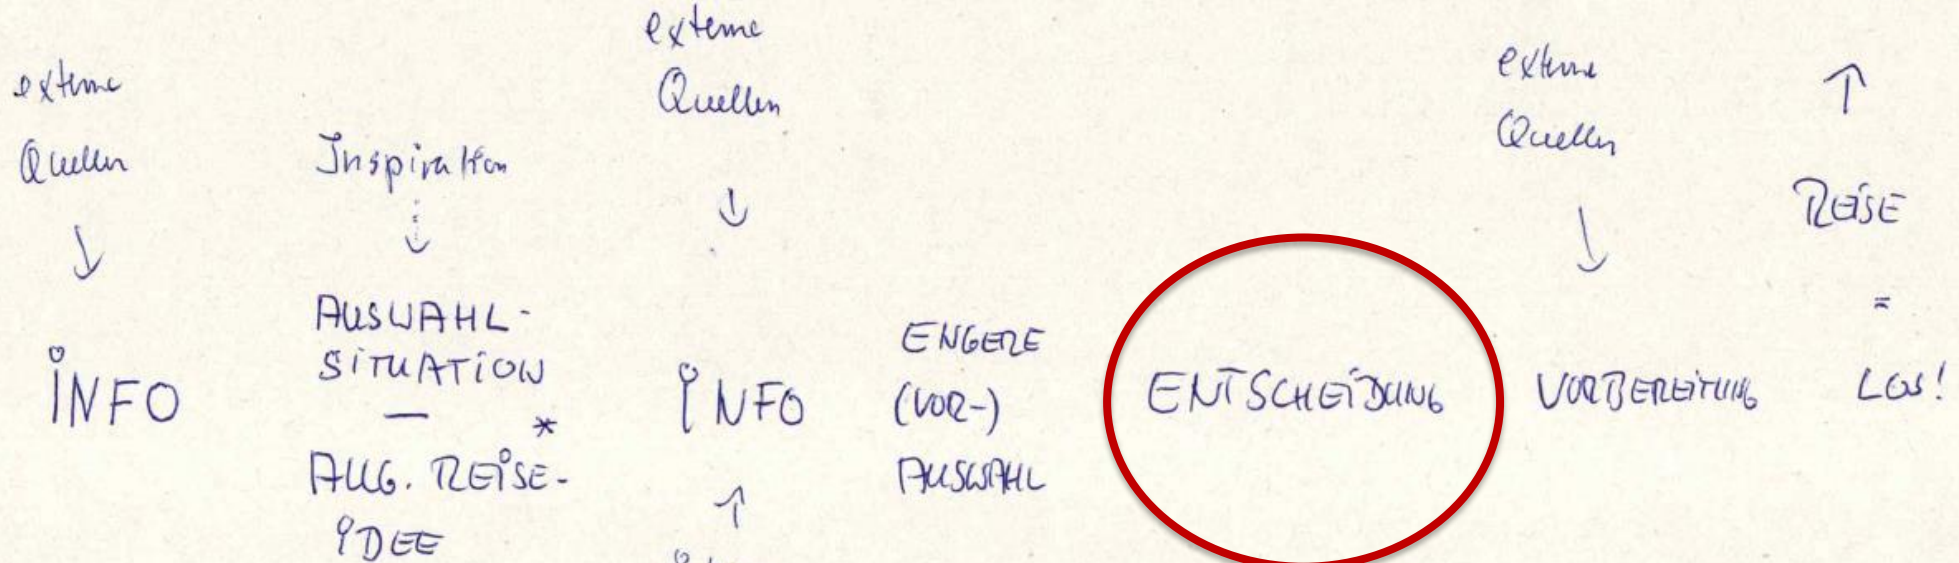 externe
Quellen
INFO
Inspiration
AUSWAHL-
SITUATION
—
*
ALLG. REISE-
IDEE
externe
Quellen
INFO
ENGERE
(VOR-)
AUSWAHL
ENTSCHEIDUNG
externe
Quellen
VORBEREITUNG
REISE
=
LOS!